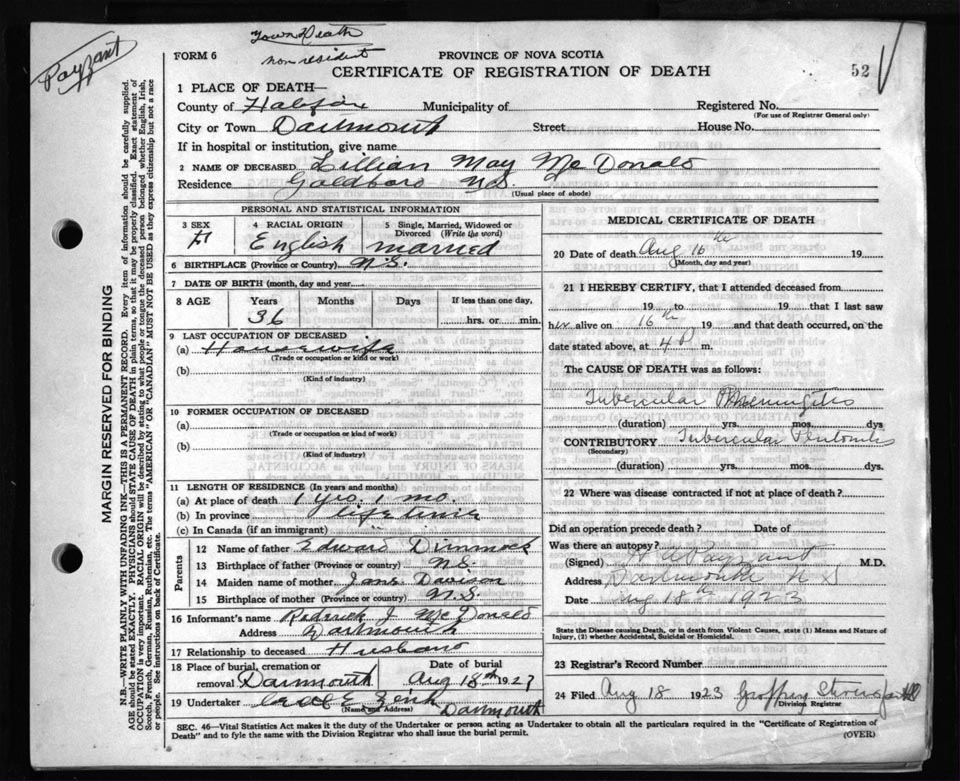 Payzant
Town Death
non resident
52
FORM 6
PROVINCE OF NOVA SCOTIA
CERTIFICATE OF REGISTRATION OF DEATH
MARGIN RESERVED FOR BINDING
N.B.—WRITE PLAINLY WITH UNFADING INK—THIS IS A PERMANENT RECORD. Every item of information should be carefully supplied.
AGE should be stated EXACTLY. PHYSICIANS should STATE CAUSE OF DEATH in plain terms, so that it may be properly classified. Exact statement of
OCCUPATION is very important. RACIAL ORIGIN will be described by stating to what people or tongue the deceased person belonged whether English, Irish,
Scotch, French, German, Russian, Ruthenian, etc. The terms "AMERICAN" OR "CANADIAN" MUST NOT BE USED as they express citizenship but not a race
or people. See instructions on back of Certificate.
1 PLACE OF DEATH—
County of Halifax Municipality of Registered No.
(For use of Registrar General only)
City or Town Dartmouth Street House No.
If in hospital or institution, give name
2 NAME OF DECEASED Lillian May McDonald
Residence Goldboro N.S.
(Usual place of abode)
PERSONAL AND STATISTICAL INFORMATION
3 SEX 4 RACIAL ORIGIN 5 Single, Married, Widowed or
Divorced (Write the word)
F English married
6 BIRTHPLACE (Province or Country) N.S.
7 DATE OF BIRTH (month, day and year)
8 AGE Years Months Days If less than one day,
36 hrs. or min.
9 LAST OCCUPATION OF DECEASED
(a) Housewife
(Trade or occupation or kind or work)
(b)
(Kind of industry)
10 FORMER OCCUPATION OF DECEASED
(a)
(Trade or occupation or kind of work)
(b)
(Kind of industry)
11 LENGTH OF RESIDENCE (In years and months)
(a) At place of death 1 yrs. 1 mo.
(b) In province life time
(c) In Canada (if an immigrant)
Parents
12 Name of father Edward Dimmock
13 Birthplace of father (Province or country) N.S.
14 Maiden name of mother Jane Davison
15 Birthplace of mother (Province or country) N.S.
16 Informant's name J McDonald
Address Dartmouth
17 Relationship to deceased Husband
18 Place of burial, cremation or Date of burial
removal Dartmouth Aug 18th 1923
19 Undertaker Zink Dartmouth
(Name and Address)
MEDICAL CERTIFICATE OF DEATH
20 Date of death Aug 16th 19
(Month, day and year)
21 I HEREBY CERTIFY, that I attended deceased from
19 to 19 that I last saw
her alive on 16th 19 and that death occurred, on the
date stated above, at 4 P m.
The CAUSE OF DEATH was as follows:
Tubercular Meningitis
(duration) yrs. mos. dys
CONTRIBUTORY Tubercular Peritonitis
(Secondary)
(duration) yrs. mos. dys.
22 Where was disease contracted if not at place of death?
Did an operation precede death? Date of
Was there an autopsy?
(Signed) Payzant M.D.
Address Dartmouth N S
Date Aug 18th 1923
State the Disease causing Death, or in death from Violent Causes, state (1) Means and Nature of
Injury, (2) whether Accidental, Suicidal or Homicidal.
23 Registrar's Record Number
24 Filed Aug 18 1923 Geoffrey
Division Registrar
SEC. 46—Vital Statistics Act makes it the duty of the Undertaker or person acting as Undertaker to obtain all the particulars required in the "Certificate of Registration of
Death" and to fyle the same with the Division Registrar who shall issue the burial permit.
(OVER)